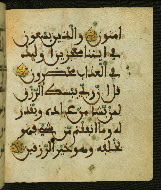 امنون والذين يسعون
في ايتنا معجزين اوليك
في العذاب محضرون
قل ان ربي يبسط الرزق
لمن يشا من عباده ويقدر
له وما انفقتم من شي فهو
يخلفه وهو خير الرزقين